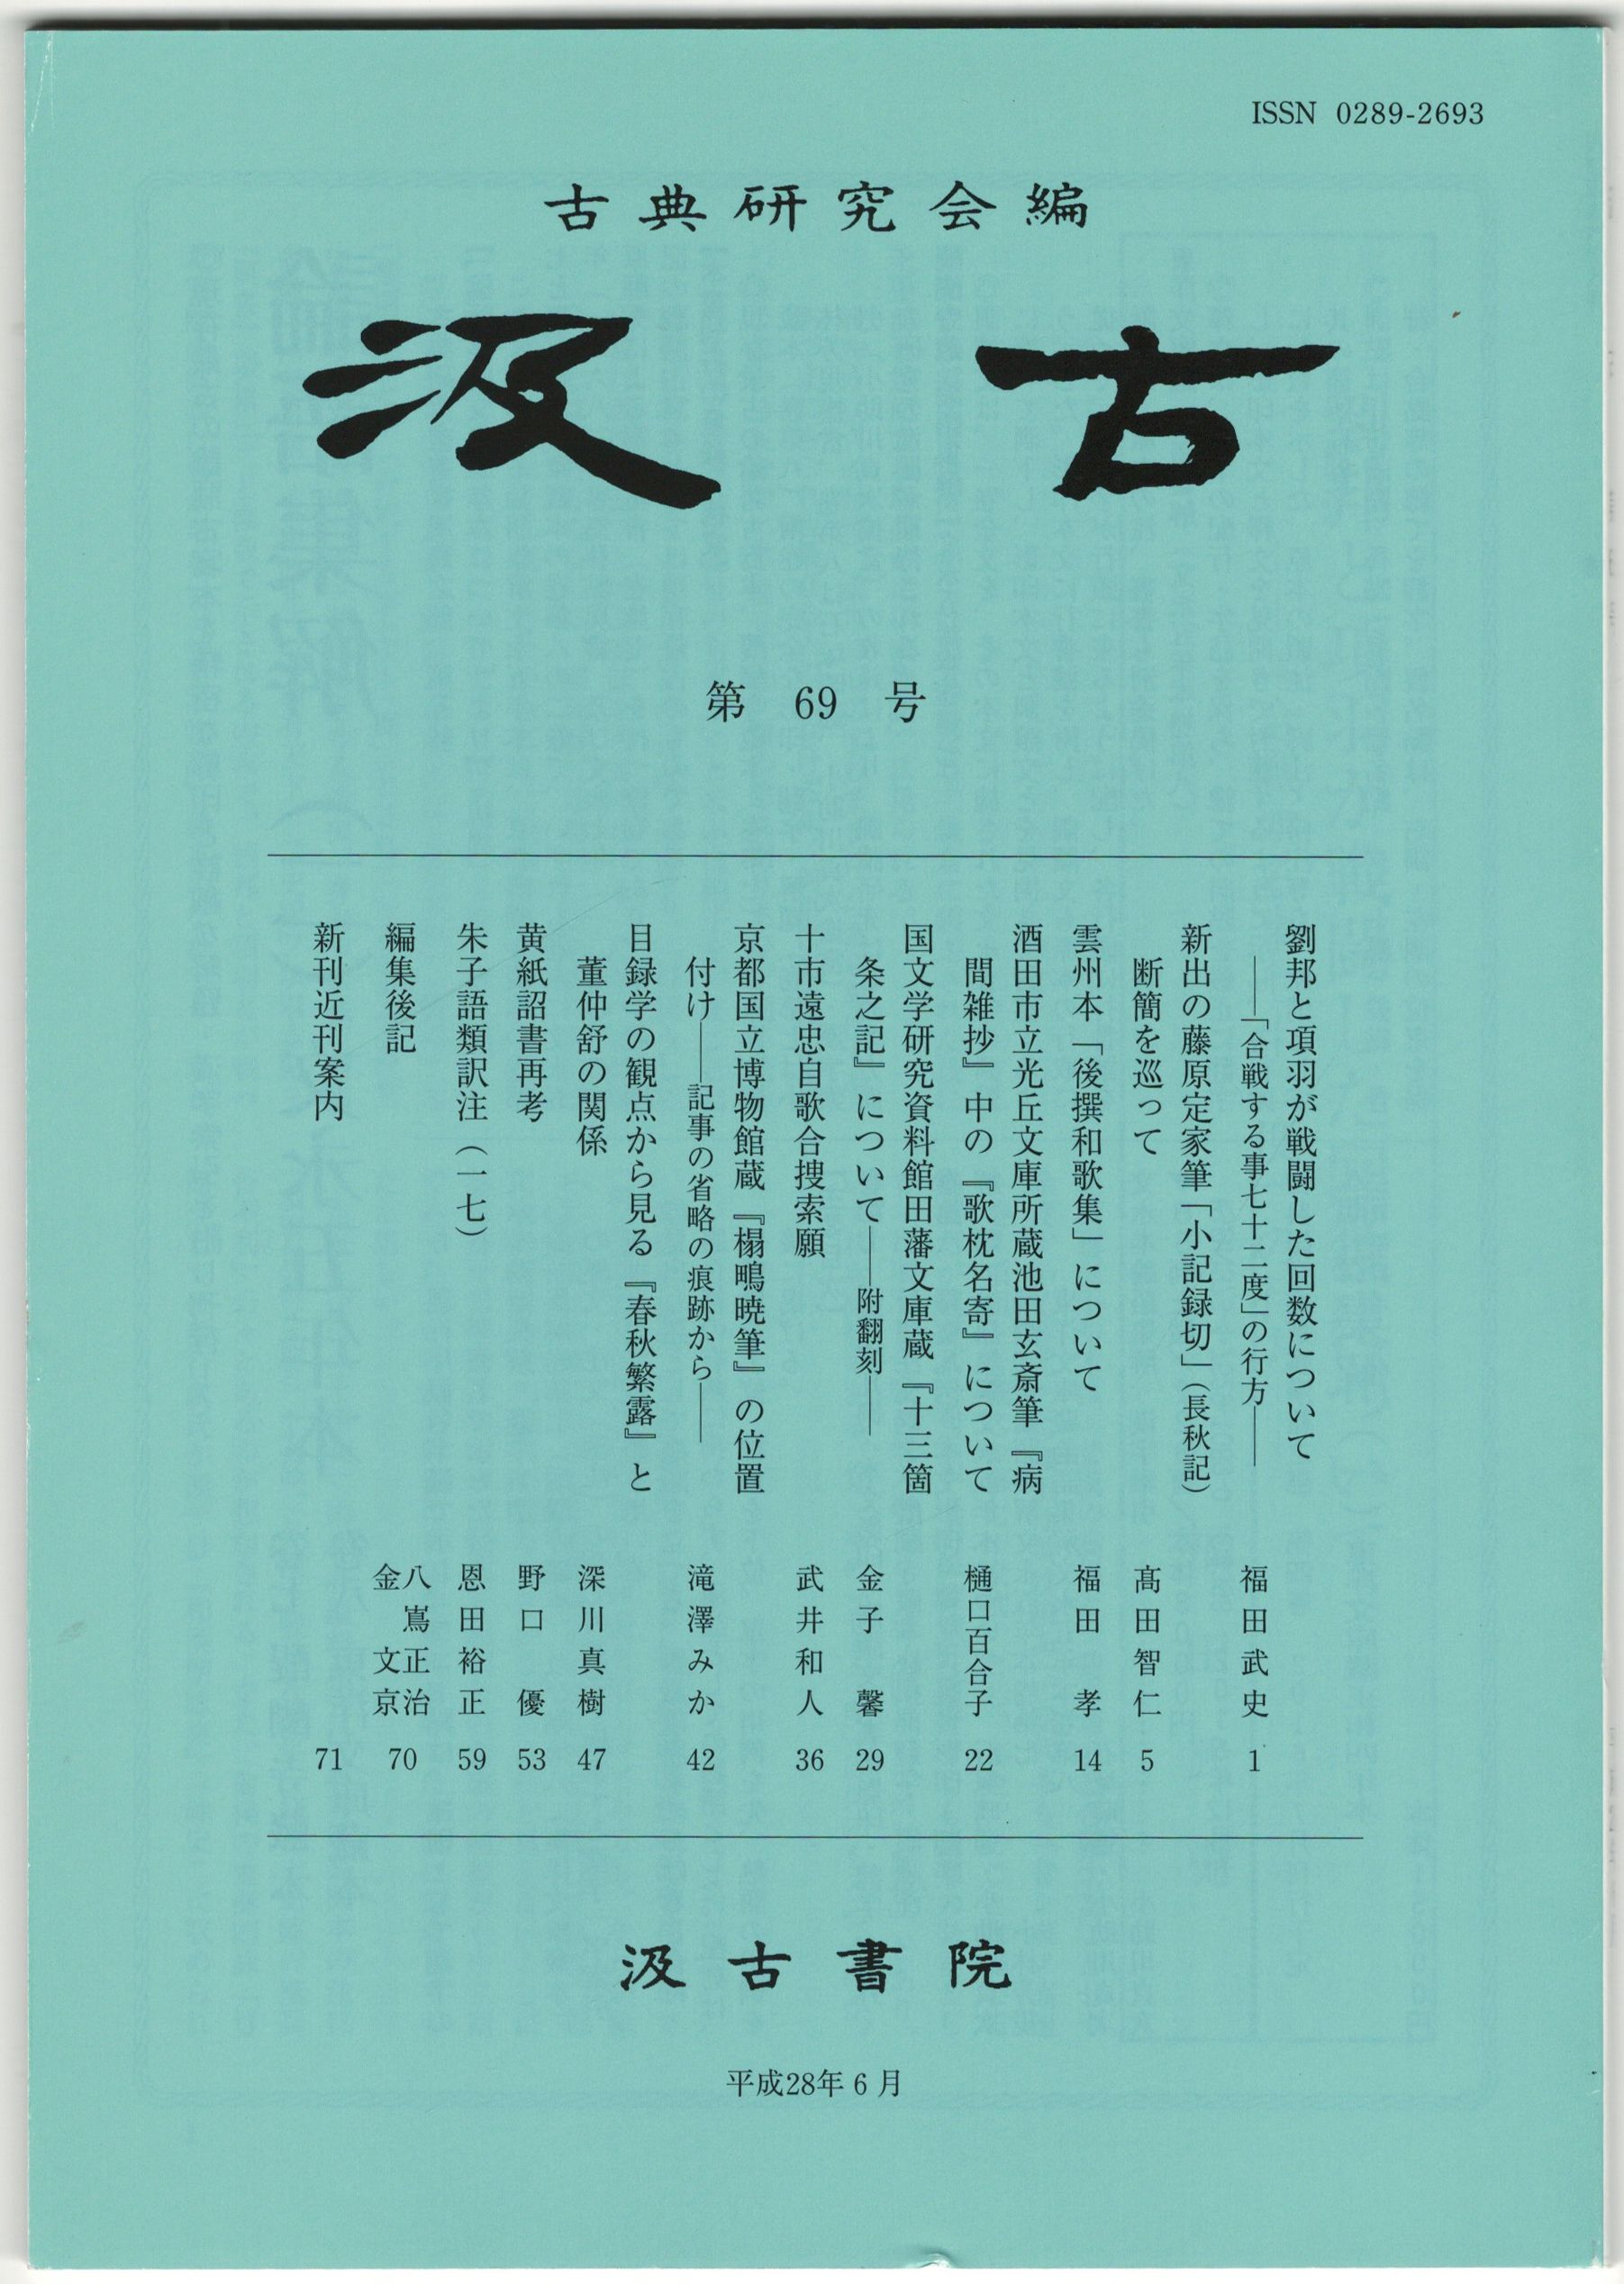 ISSN 0289-2693
古典研究会編
汲古
第 69 号
劉邦と項羽が戦闘した回数について
――「合戦する事七十二度」の行方―― 福田武史 1
新出の藤原定家筆「小記録切」（長秋記）
断簡を巡って 髙田智仁 5
雲州本「後撰和歌集」について 福田 孝 14
酒田市立光丘文庫所蔵池田玄斎筆『病
間雑抄』中の『歌枕名寄』について 樋口百合子 22
国文学研究資料館田藩文庫蔵『十三箇
条之記』について――附翻刻―― 金子 馨 29
十市遠忠自歌合捜索願 武井和人 36
京都国立博物館蔵『榻鴫暁筆』の位置
付け――記事の省略の痕跡から―― 滝澤みか 42
目録学の観点から見る『春秋繁露』と
董仲舒の関係 深川真樹 47
黄紙詔書再考 野口 優 53
朱子語類訳注（一七） 恩田裕正 59
編集後記 八嶌正治 金 文京 70
新刊近刊案内 71
汲古書院
平成28年6月